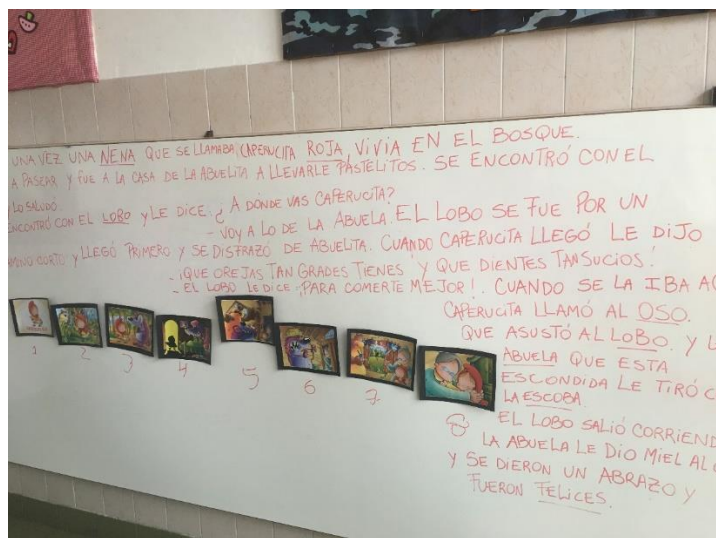 UNA VEZ UNA NENA QUE SE LLAMABA CAPERUCITA ROJA, VIVIA EN EL BOSQUE.
A PASEAR Y FUE A LA CASA DE LA ABUELITA A LLEVARLE PASTELITOS. SE ENCONTRÓ CON EL
Y LO SALUDÓ.
ENCONTRÓ CON EL LOBO Y LE DICE ¿A DÓNDE VAS CAPERUCITA?
- VOY A LO DE LA ABUELA. EL LOBO SE FUE POR UN
CAMINO CORTO Y LLEGÓ PRIMERO Y SE DISFRAZÓ DE ABUELITA. CUANDO CAPERUCITA LLEGÓ LE DIJO
- ¡QUE OREJAS TAN GRADES TIENES Y QUE DIENTES TAN SUCIOS!
- EL LOBO LE DICE ¡PARA COMERTE MEJOR!. CUANDO SE LA IBA A
CAPERUCITA LLAMÓ AL OSO.
QUE ASUSTÓ AL LOBO. Y
ABUELA QUE ESTA
ESCONDIDA LE TIRÓ
LA ESCOBA.
EL LOBO SALIÓ CORRIEND
LA ABUELA LE DIO MIEL AL
Y SE DIERON UN ABRAZO Y
FUERON FELICES.
1 2 3 4 5 6 7 8